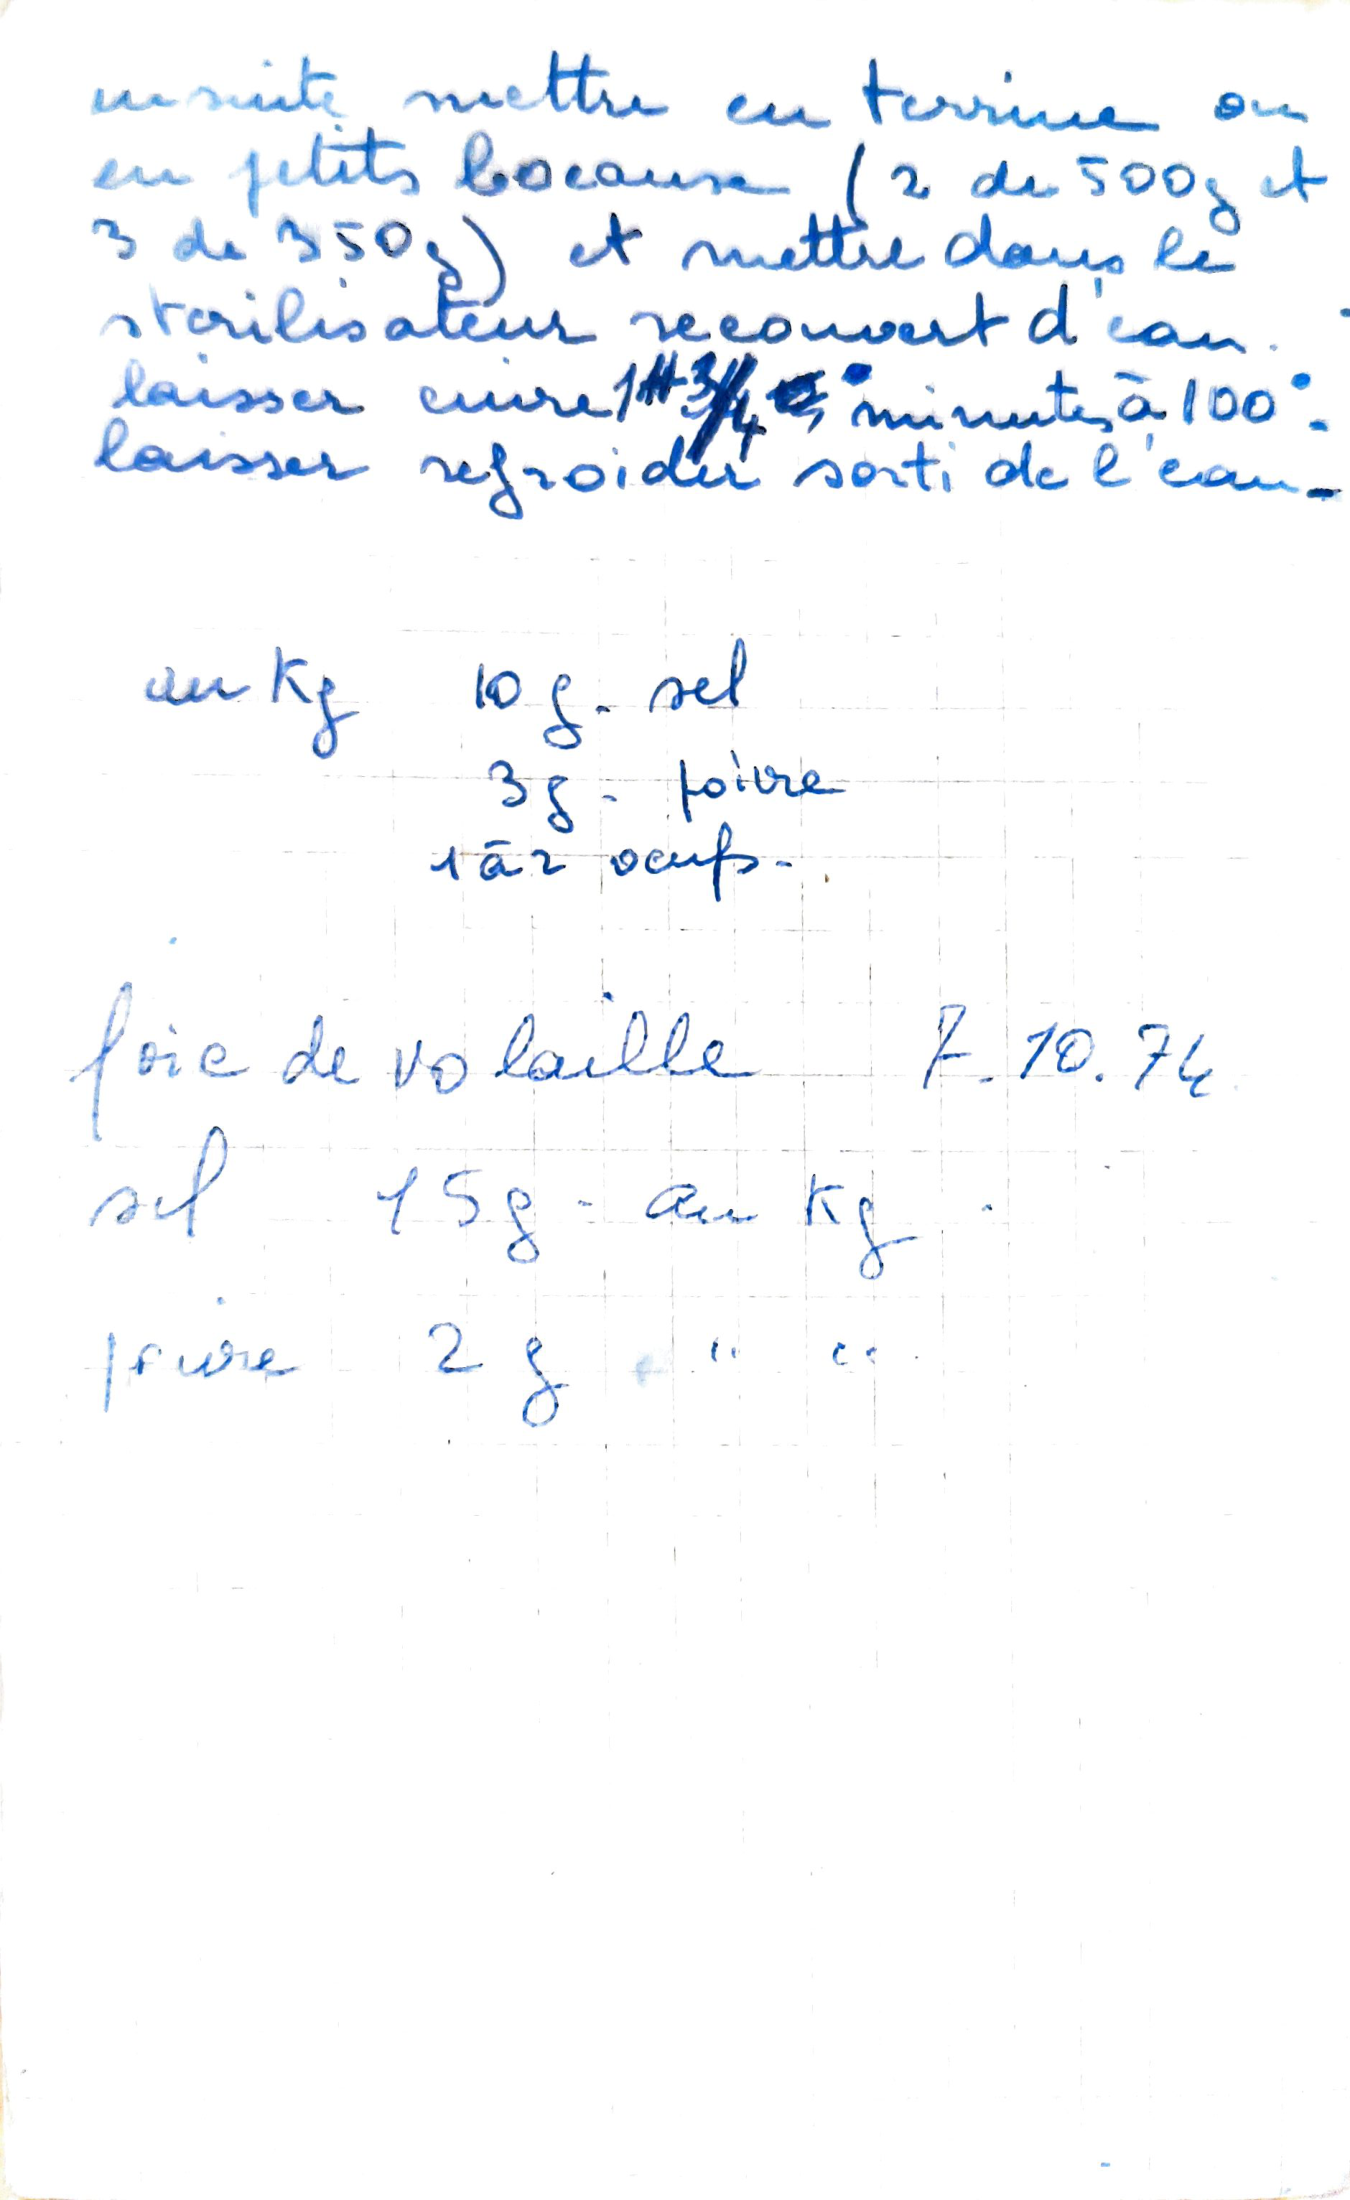 ensuite mettre en terrine ou
en petits bocaux (2 de 500g et
3 de 350g) et mettre dans le
stérilisateur recouvert d'eau.
laisser cuire 1H 3/4 minutes à 100°.
laisser refroidir sorti de l'eau-
au Kg 10 g. sel
3g. poivre
1 à 2 oeufs.
foie de volaille 7.10.74
sel 15g - au Kg.
poivre 2 g " "